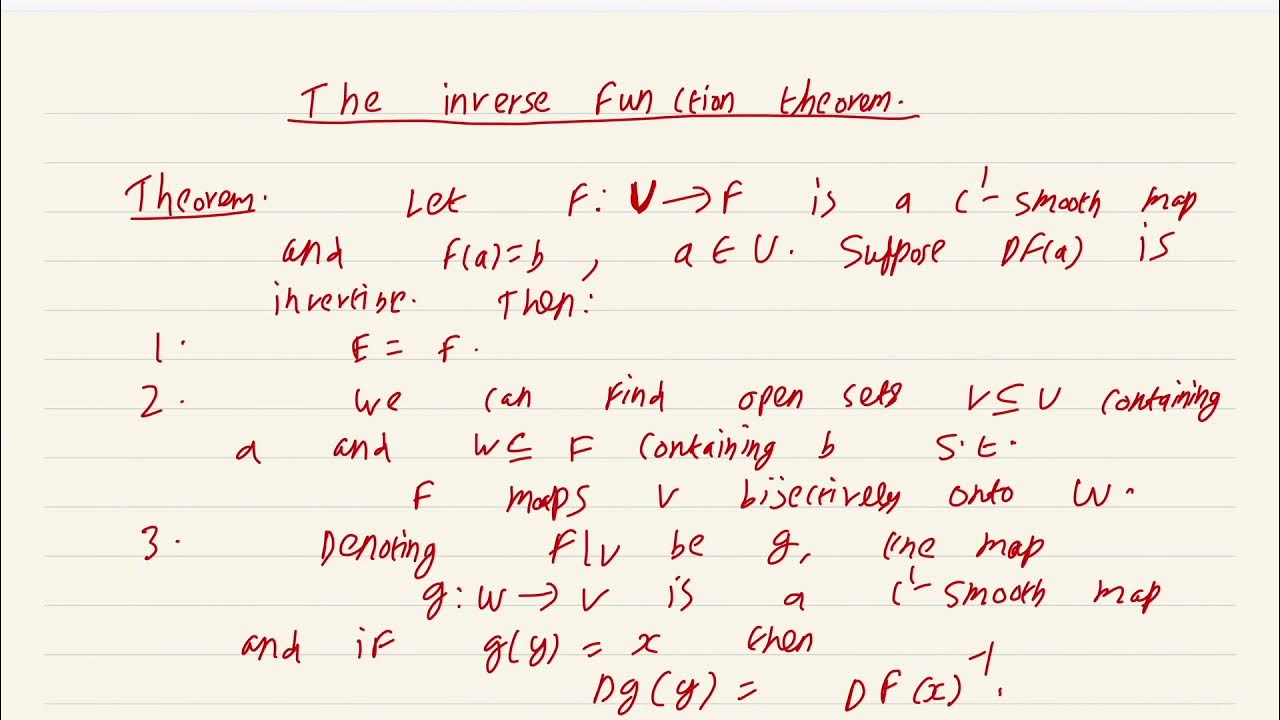 The inverse function theorem.
Theorem. Let F: U → F is a C¹-smooth map
and F(a)=b, a ∈ U. Suppose DF(a) is
invertibe. Then:
1. E = F.
2. we can find open sets V ⊆ U containing
a and W ⊆ F containing b s.t.
F maps V bijectively onto W.
3. Denoting F|v be g, the map
g: W → V is a C¹-smooth map
and if g(y) = x then
Dg(y) = DF(x)⁻¹.